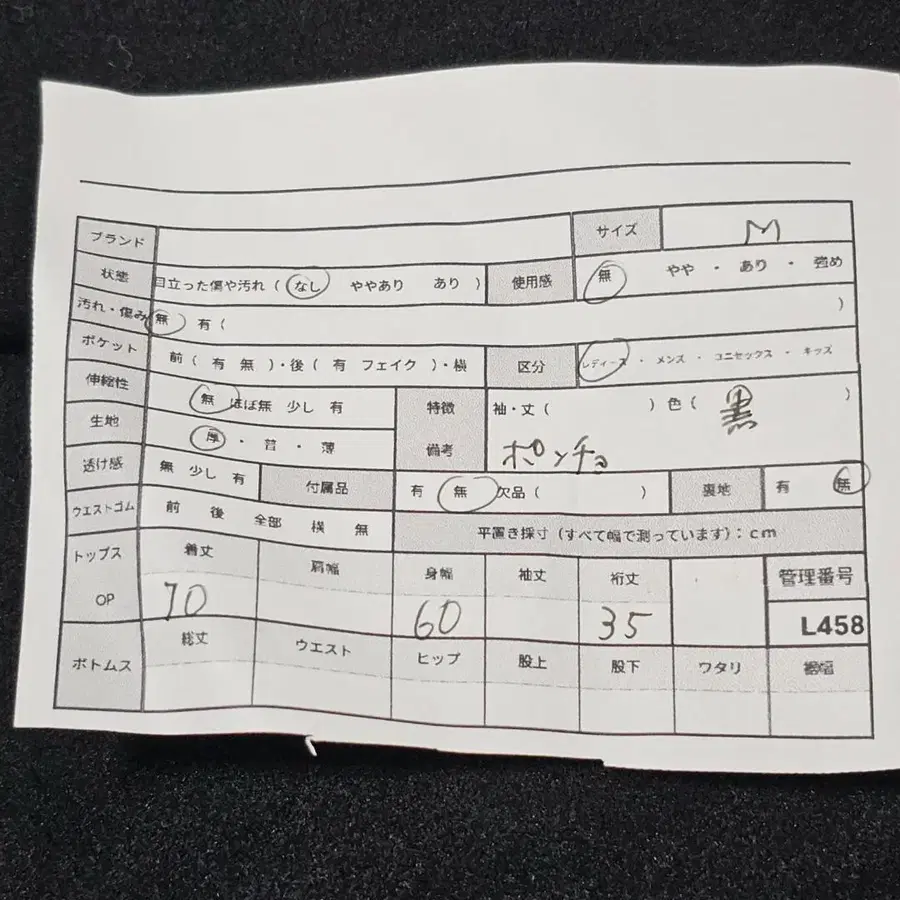 ブランド サイズ M
状態 目立った傷や汚れ ( なし ややあり あり ) 使用感 無 やや ・ あり ・ 強め
汚れ・傷み 無 有 ( )
ポケット 前 ( 有 無 )・後 ( 有 フェイク )・横 区分 レディース ・ メンズ ・ ユニセックス ・ キッズ
伸縮性 無 ほぼ無 少し 有 特徴 袖・丈 ( ) 色 ( 黒 )
生地 厚 ・ 普 ・ 薄 備考 ポンチョ
透け感 無 少し 有 付属品 有 無 欠品 ( ) 裏地 有 無
ウエストゴム 前 後 全部 横 無 平置き採寸 (すべて幅で測っています) : cm
トップス 着丈 肩幅 身幅 袖丈 裄丈 管理番号
OP 70 60 35 L458
ボトムス 総丈 ウエスト ヒップ 股上 股下 ワタリ 裾幅